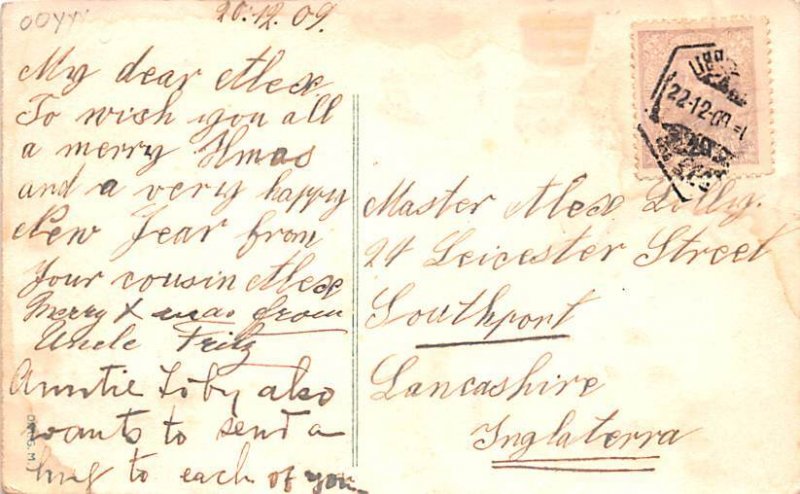 20.12.09.
My dear Alex
To wish you all
a merry Xmas
and a very happy
New Year from
Your cousin Alex
Merry Xmas from
Uncle Fritz
Auntie Toby also
wants to send a
hug to each of you
Master Alex Lilly.
24 Leicester Street
Southport
Lancashire
Inglaterra
22-12-09